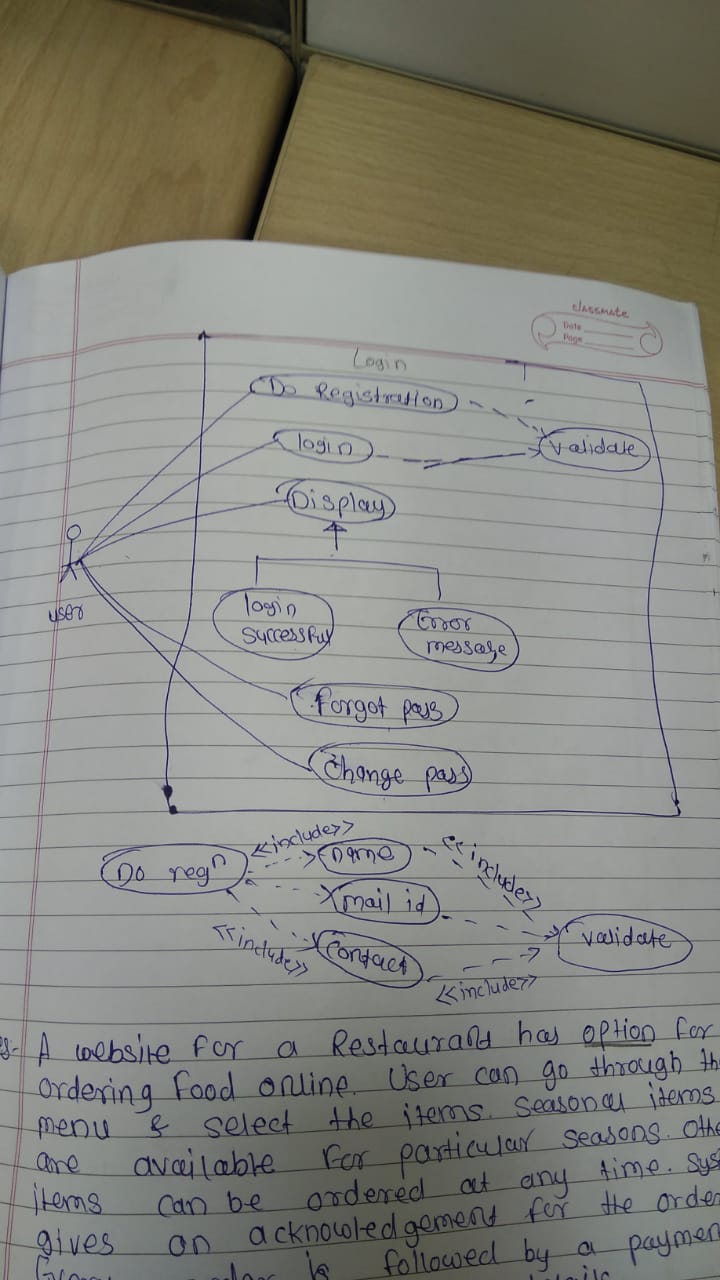 classmate
Date
Page
Login
Do Registration
login
validate
Display
user
login
successful
Error
message
Forgot pass
Change pass
<<include>>
Do regn
name
<<include>>
mail id
validate
<<include>>
contact
<<include>>
A website for a Restaurant has option for
ordering food online. User can go through
menu & select the items. Seasonal items
are available for particular seasons.
items can be ordered at any time.
gives an acknowledgement for the
is followed by a